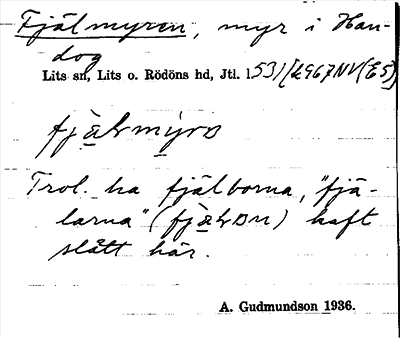 Fjälmyren, myr i Han-
dog
Lits sn, Lits o. Rödöns hd, Jtl.
fjälmyrɷ
Trol. ha fjälborna, "fjä-
larna" haft
slått här.
A. Gudmundson 1936.